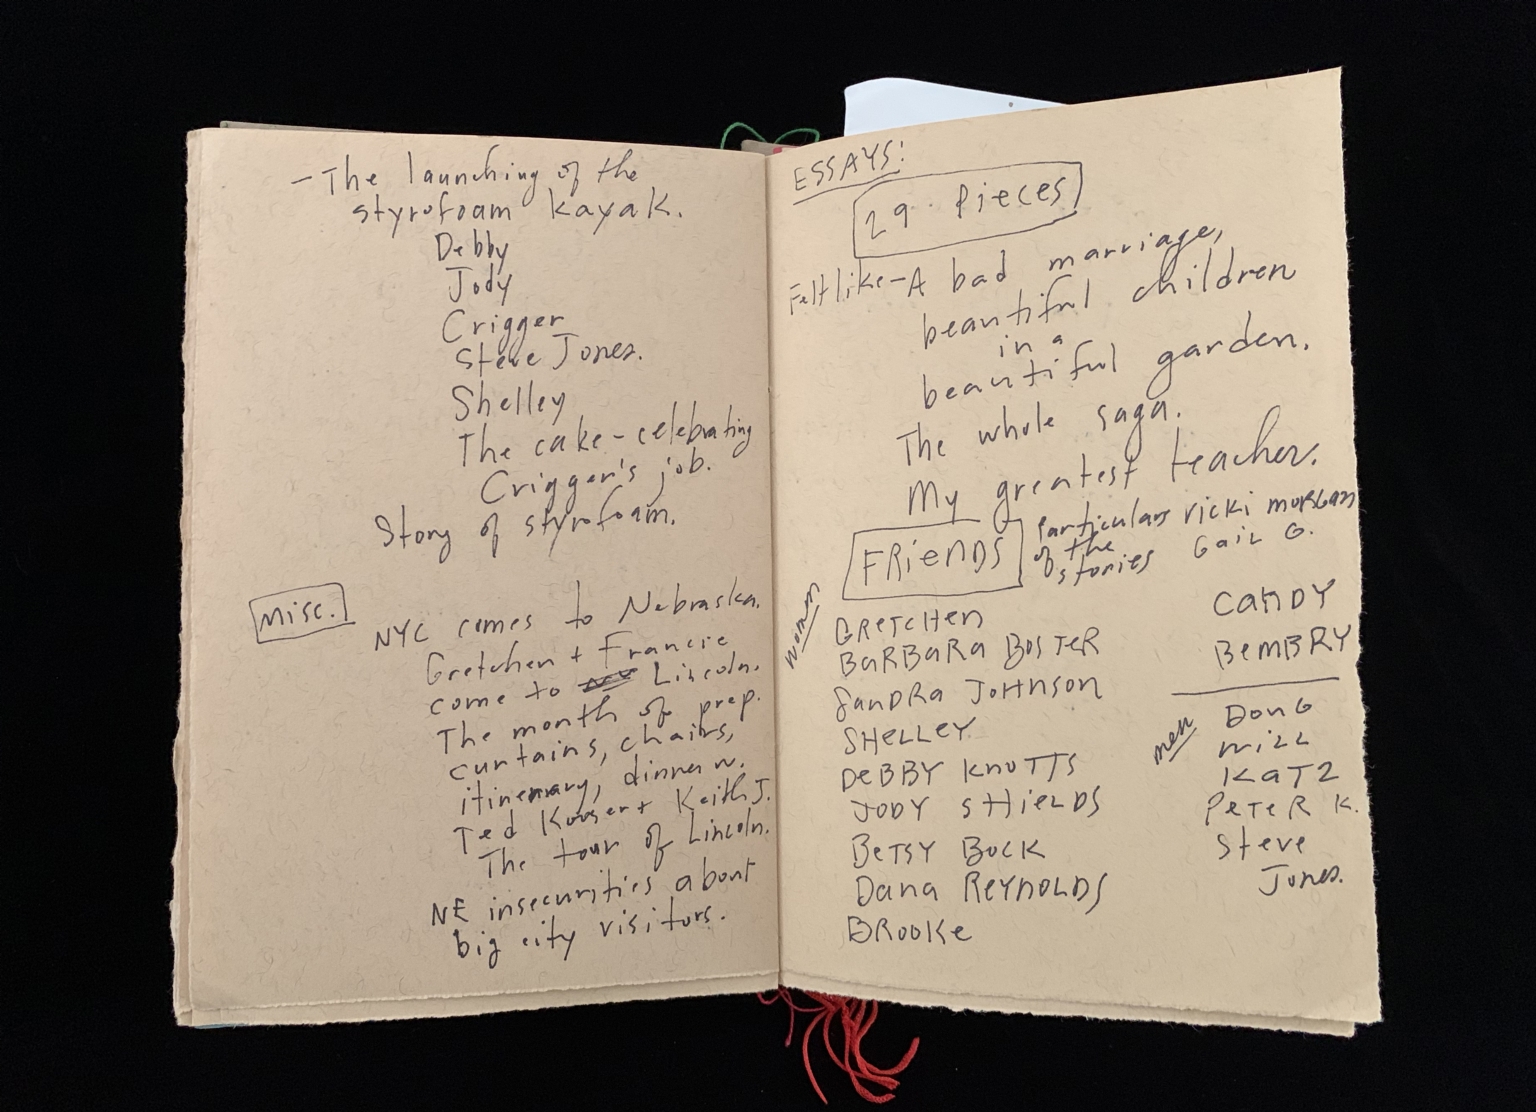 - The launching of the
styrofoam kayak.
Debby
Jody
Crigger
Steve Jones.
Shelley
The cake - celebrating
Crigger's job.
Story of styrofoam.
Misc.
NYC comes to Nebraska.
Gretchen + Francie
come to Lincoln.
The month of prep.
curtains, chairs,
itinerary, dinner w.
Ted Kooser + Keith J.
The tour of Lincoln.
NE insecurities about
big city visitors.
ESSAYS:
29 Pieces
Felt like - A bad marriage,
beautiful children
in a
beautiful garden.
The whole saga.
My greatest teacher.
FRIENDS
Particulars
of the
stories
Vicki Morgan
Gail G.
women
GRETCHEN
BARBARA BOSTER
SANDRA JOHNSON
SHELLEY
DEBBY KNOTTS
JODY SHIELDS
BETSY BOCK
Dana REYNOLDS
BROOKe
CANDY
BeMBRY
men
DOUG
MILL
KATZ
PETER K.
Steve
Jones.